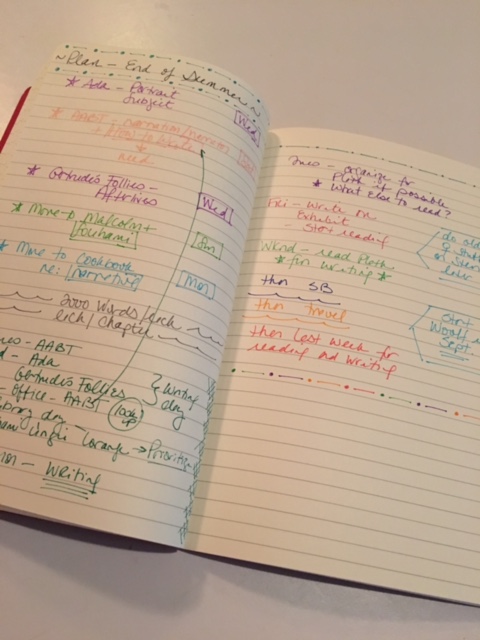 ~Plan - End of Summer ~
* Ada - Portrait
Subject
Wed
* AABT - narration/narrem
+ How to Write
need
* Gertrudes Follies -
Affinities
Wed
* Move to Malcolm +
Jouhami
Sun
* Move to Cookbook
re: narrative
Mon
2000 words/each
ech/Chapter
AABT
- Ada
Gertrudes Follies
- office - AABT
look up
} Writing
day
day
→ Prioritize
- Writing
Tues - organize for
Plath if possible
* What else to read?
Fri - Write on
Exhibit
- start reading
Wknd - read Plath
* fin writing *
then SB
then travel
then last week for
reading and writing
do old
& stuff
on Stein
later
start
Woolf
Sept